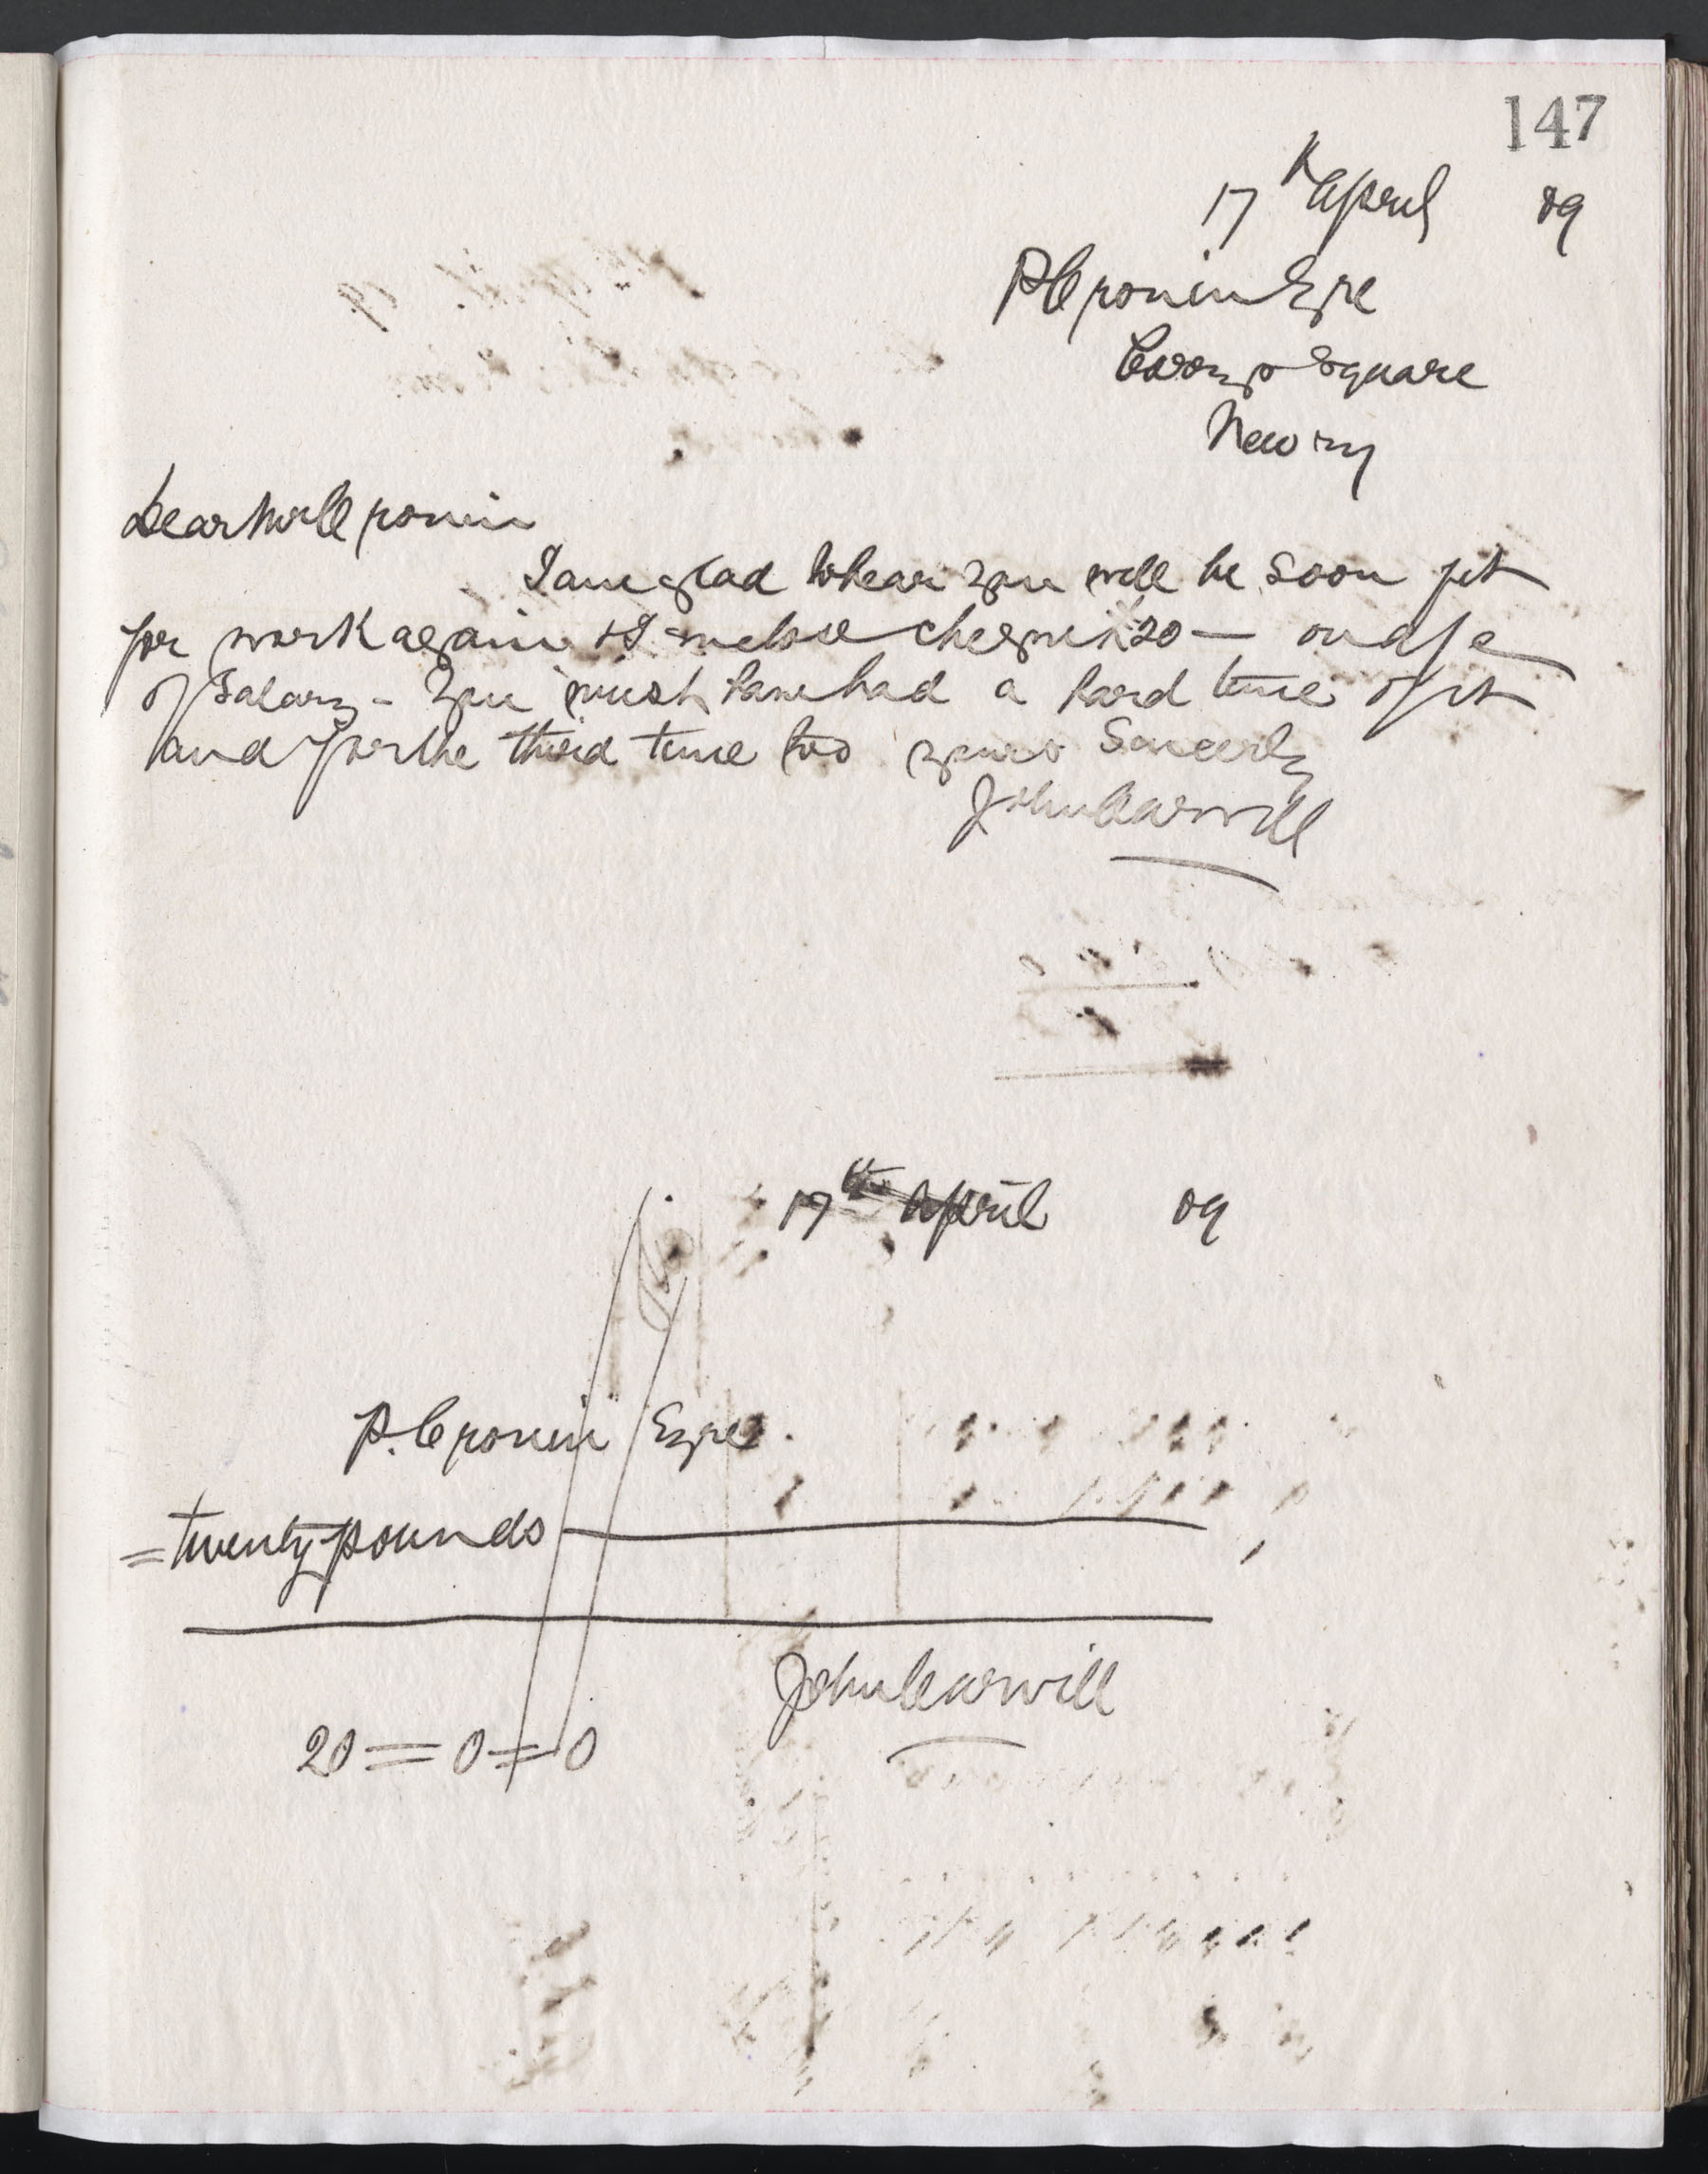 147
17th April 09
P Cronin Esqre
Corry's Square
Newry
Dear Mr Cronin
I am glad to hear you will be soon fit
for work again & I enclose cheque £20 — on a/c
of Salary - you must have had a hard time of it
and for the third time too yours Sincerely
John Carvill
17th April 09
P. Cronin Esqre.
= twenty pounds
John Carvill
20 = 0 = 0